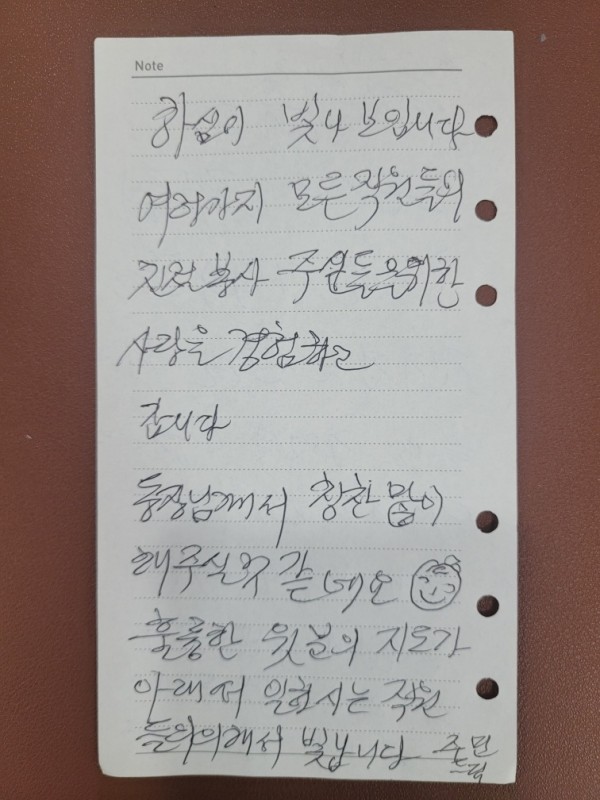 Note
하심이 빛나 보입니다
여러가지 모든 직원들의
친절 봉사 주민들을위한
사랑을 경험하고
갑니다
동장님께서 칭찬 많이
해주실것 같은네요
훌륭한 윗분의 지도가
아래서 일하시는 직원
들의 빛납니다 주민
드림